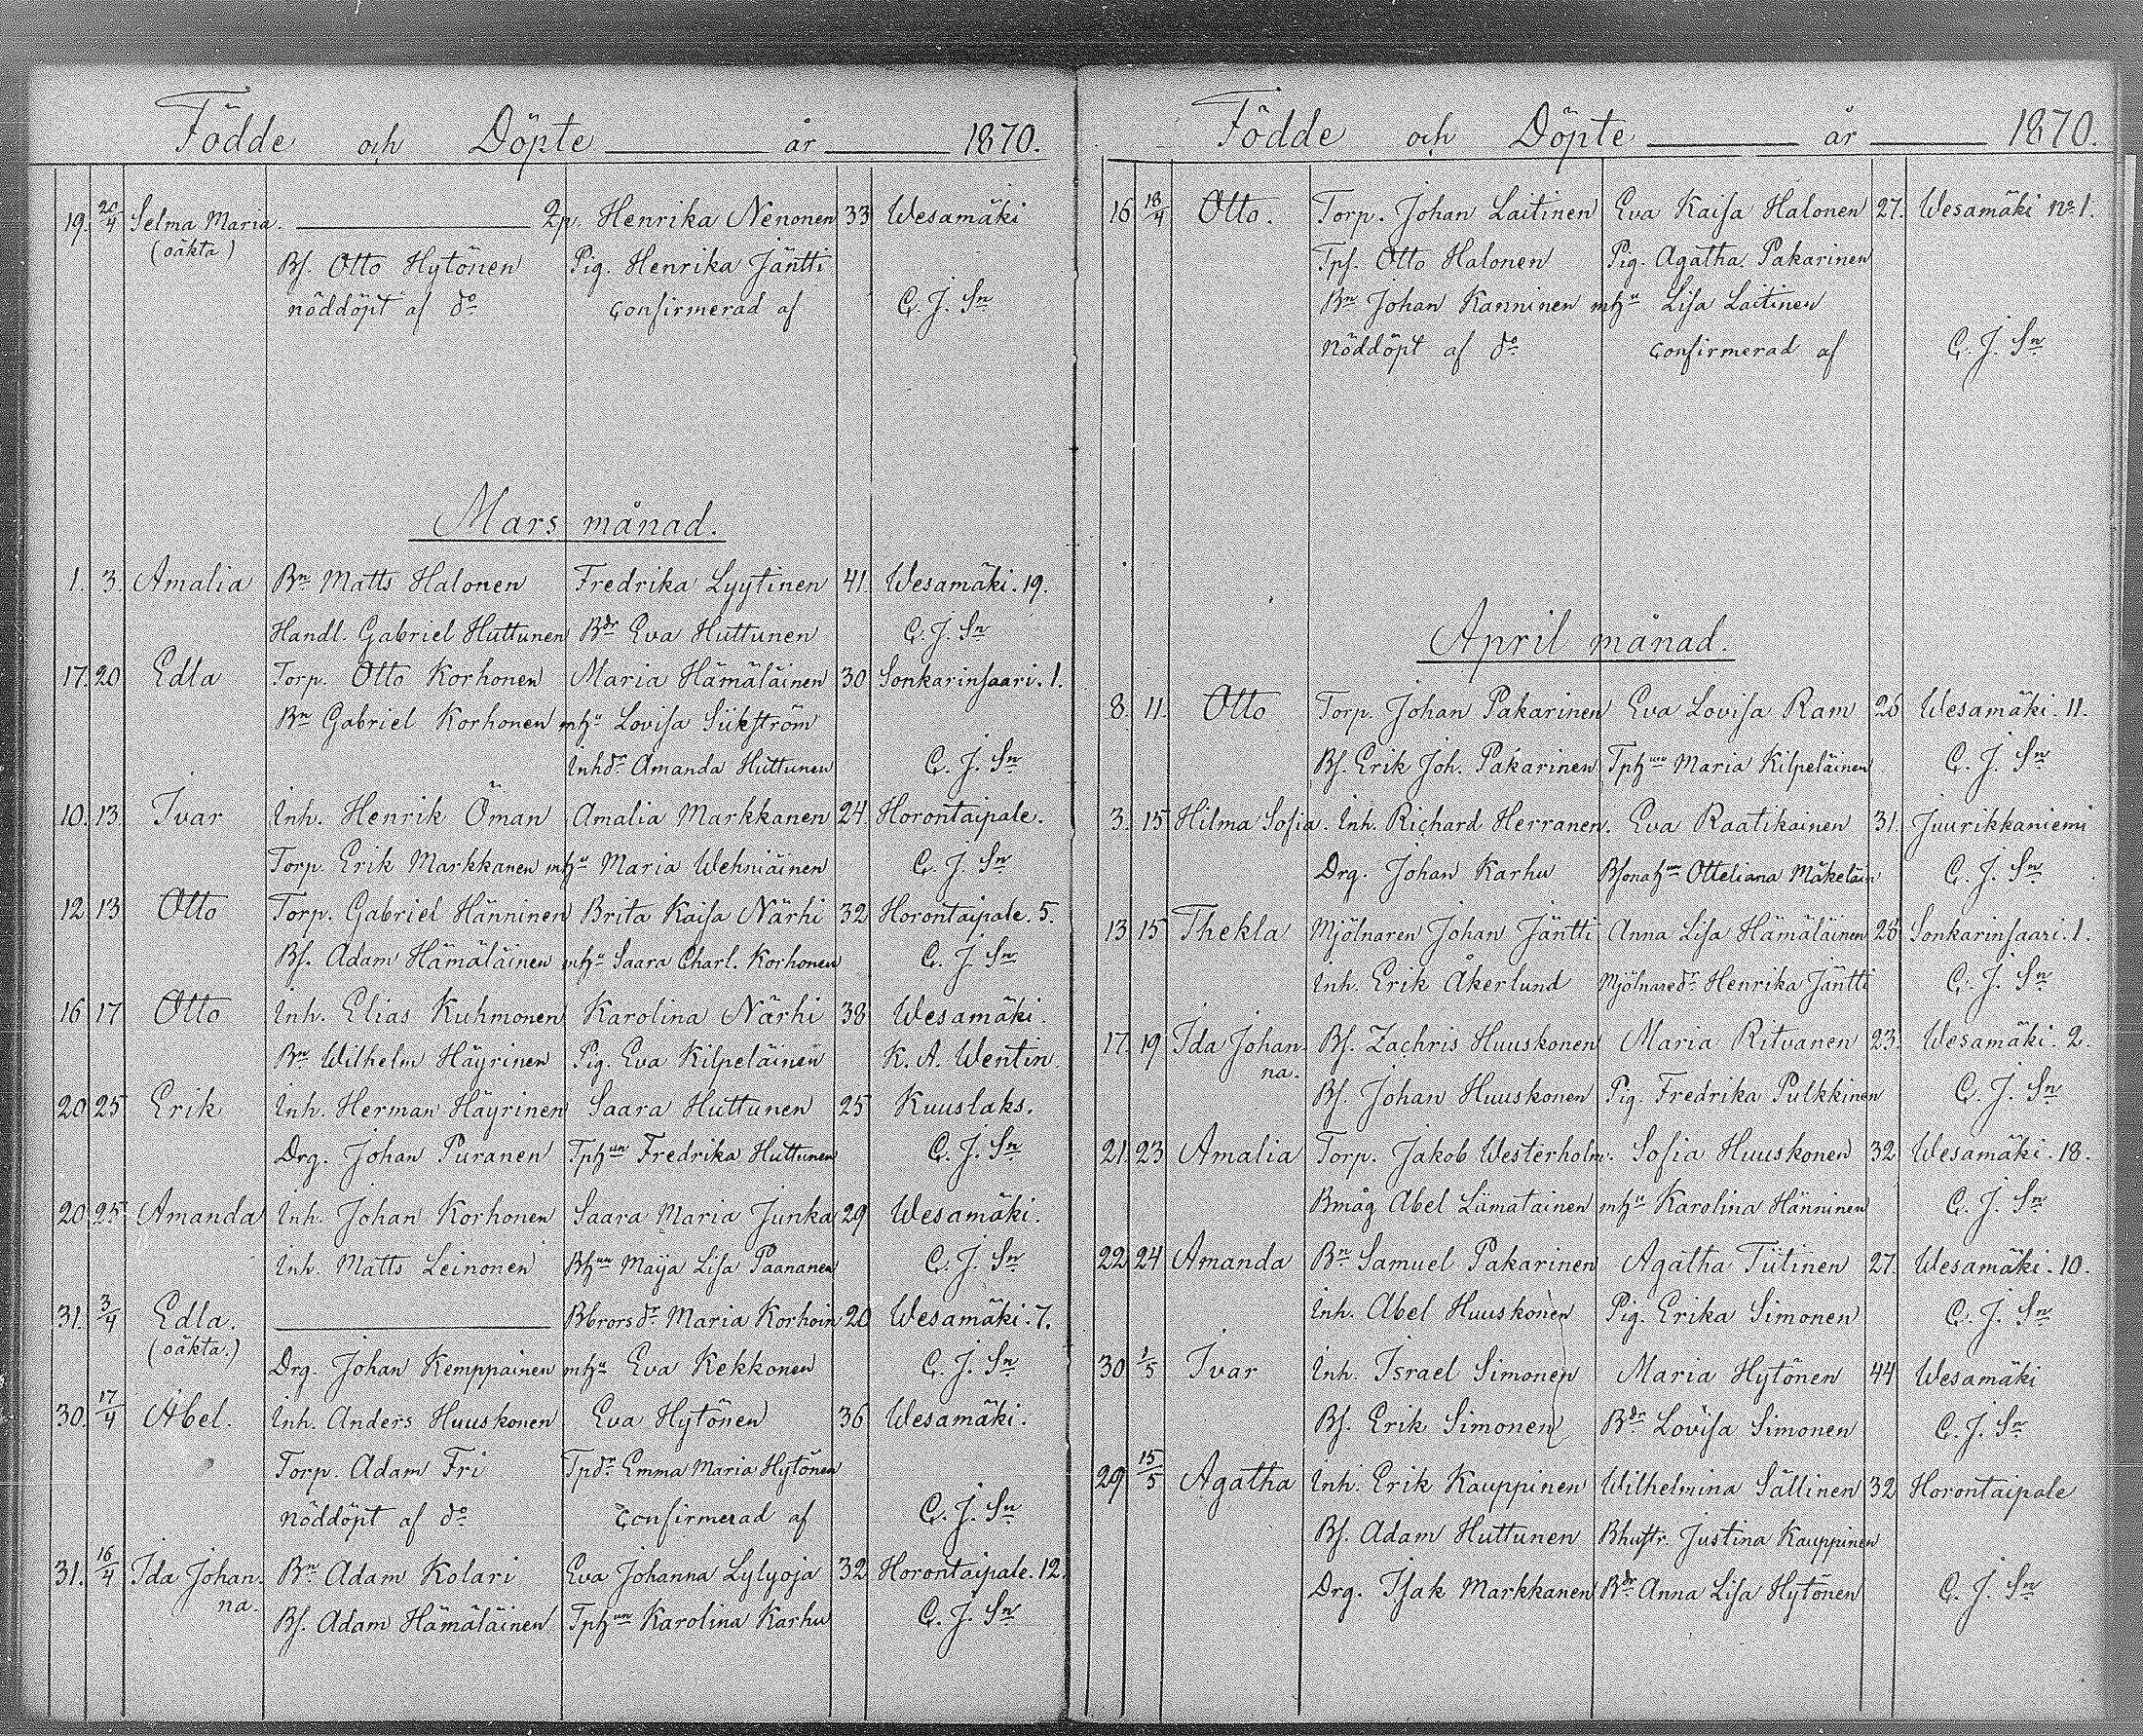 Födde och Döpte år 1870.
19. 20/4 Selma Maria. 2p. Henrika Nenonen 33 Wesamäki
(oäkta)
Bs. Otto Hytönen Pig. Henrika Jäntti
nöddöpt af do confirmerad af C. J. Sn
Mars månad.
1. 3. Amalia Bn Matts Halonen Fredrika Lyytinen 41. Wesamäki. 19.
Handl. Gabriel Huttunen Bdr Eva Huttunen C. J. Sn
17. 20 Edla Torp. Otto Korhonen Maria Hämäläinen 30 Sonkarinsaari. 1.
Bn Gabriel Korhonen mhu Lovisa Siikström
Inhdr Amanda Huttunen C. J. Sn
10. 13. Ivar Inh. Henrik Öman Amalia Markkanen 24. Horontaipale.
Torp. Erik Markkanen mhu Maria Wehniäinen C. J. Sn
12 13 Otto Torp. Gabriel Hänninen Brita Kaisa Närhi 32 Horontaipale. 5.
Bs. Adam Hämäläinen mhu Saara Charl. Korhonen C. J. Sn
16 17 Otto Inh. Elias Kuhmonen Karolina Närhi 38 Wesamäki.
Bn Wilhelm Häyrinen Pig. Eva Kilpeläinen K. A. Wentin.
20 25 Erik Inh. Herman Häyrinen Saara Huttunen 25 Kuuslaks.
Drg. Johan Puranen Tphun Fredrika Huttunen C. J. Sn
20 25 Amanda Inh. Johan Korhonen Saara Maria Junka 29 Wesamäki.
Inh. Matts Leinonen Bhun Maija Lisa Paananen C. J. Sn
31. 3/4 Edla. Bbrorsdr Maria Korhoin 20 Wesamäki. 7.
(oäkta.)
Drg. Johan Kemppainen mhu Eva Kekkonen C. J. Sn
30. 17/4 Abel. Inh. Anders Huuskonen Eva Hytönen 36 Wesamäki.
Torp. Adam Fri Tpdr Emma Maria Hytönen
nöddöpt af do confirmerad af C. J. Sn
31. 16/4 Ida Johan- Bn Adam Kolari Eva Johanna Lylyoja 32 Horontaipale. 12.
na.
Bs. Adam Hämäläinen Tphun Karolina Karhu C. J. Sn
Födde och Döpte år 1870.
16 18/4 Otto. Torp. Johan Laitinen Eva Kaisa Halonen 27. Wesamäki No 1.
Tps. Otto Halonen Pig. Agatha Pakarinen
Bn Johan Kanninen mhu Lisa Laitinen
Nöddöpt af do confirmerad af C. J. Sn
April månad.
8. 11. Otto Torp. Johan Pakarinen Eva Lovisa Ram 26 Wesamäki. 11.
Bs. Erik Joh. Pakarinen Tphun Maria Kilpeläinen C. J. Sn
3. 15 Hilma Sofia. Inh. Richard Herranen. Eva Raatikainen 31. Juurikkaniemi
Drg. Johan Karhu Bsonahun Otteliana Mäkeläin C. J. Sn
13 15 Thekla Mjölnaren Johan Jäntti Anna Lisa Hämäläinen 28 Sonkarinsaari. 1.
Inh. Erik Åkerlund Mjölnaredr Henrika Jäntti C. J. Sn
17. 19 Ida Johan- Bs. Zachris Huuskonen Maria Ritvanen 23. Wesamäki. 2.
na.
Bs. Johan Huuskonen Pig. Fredrika Pulkkinen C. J. Sn
21. 23 Amalia Torp. Jakob Westerholm. Sofia Huuskonen 32 Wesamäki. 18.
Bmåg Abel Liimatainen mhu Karolina Hänninen C. J. Sn
22 24 Amanda Bn Samuel Pakarinen Agatha Tiitinen 27. Wesamäki. 10.
Inh. Abel Huuskonen Pig. Erika Simonen C. J. Sn
30 1/5 Ivar Inh. Israel Simonen Maria Hytönen 44 Wesamäki
Bs. Erik Simonen Bdr Lovisa Simonen C. J. Sn
29 15/5 Agatha Inh. Erik Kauppinen Wilhelmina Sällinen 32 Horontaipale
Bs. Adam Huttunen Bhustr. Justina Kauppinen
Drg. Isak Markkanen Bdr Anna Lisa Hytönen C. J. Sn